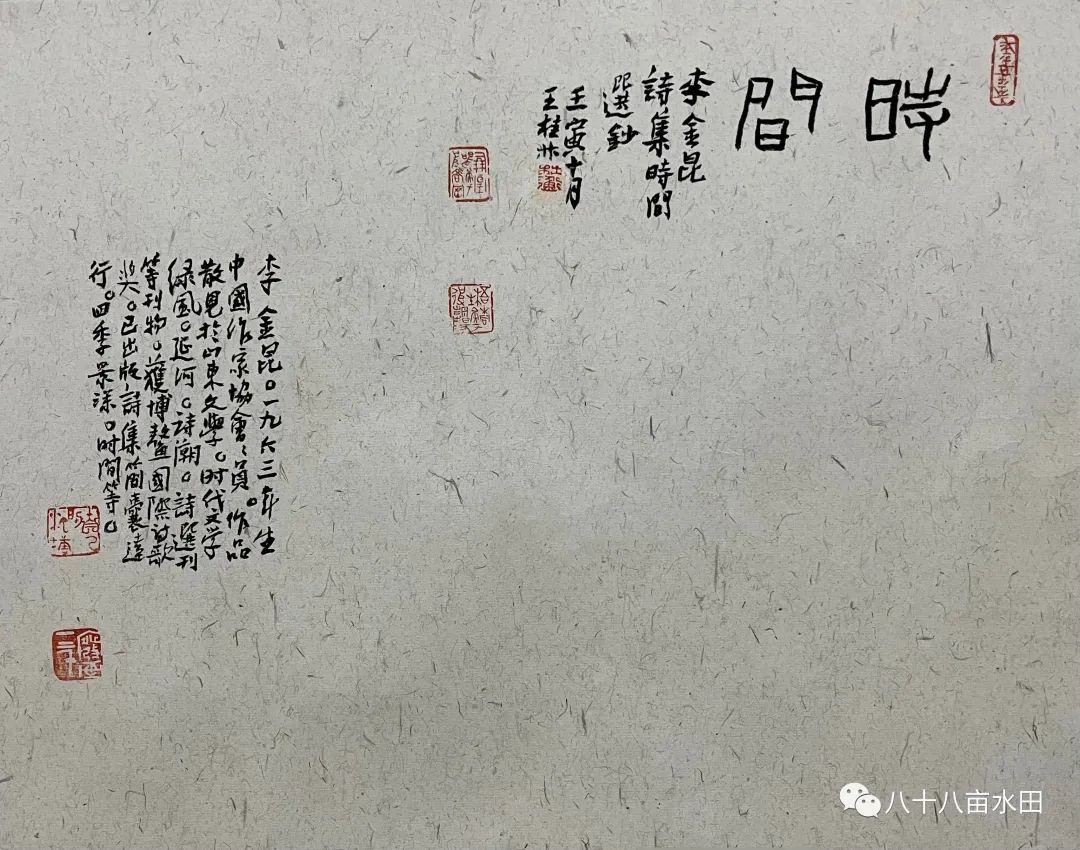 時間
李金昆
詩集時間
選鈔
壬寅十月
王桂林
李金昆。一九六三年生
中國作家協會會員。作品
散見於山東文學。时代文学
绿風。延河。詩潮。詩選刊
等刊物。獲博鰲國際詩歌
奖。已出版詩集簡囊遠
行。四季景深。时間等。
八十八亩水田